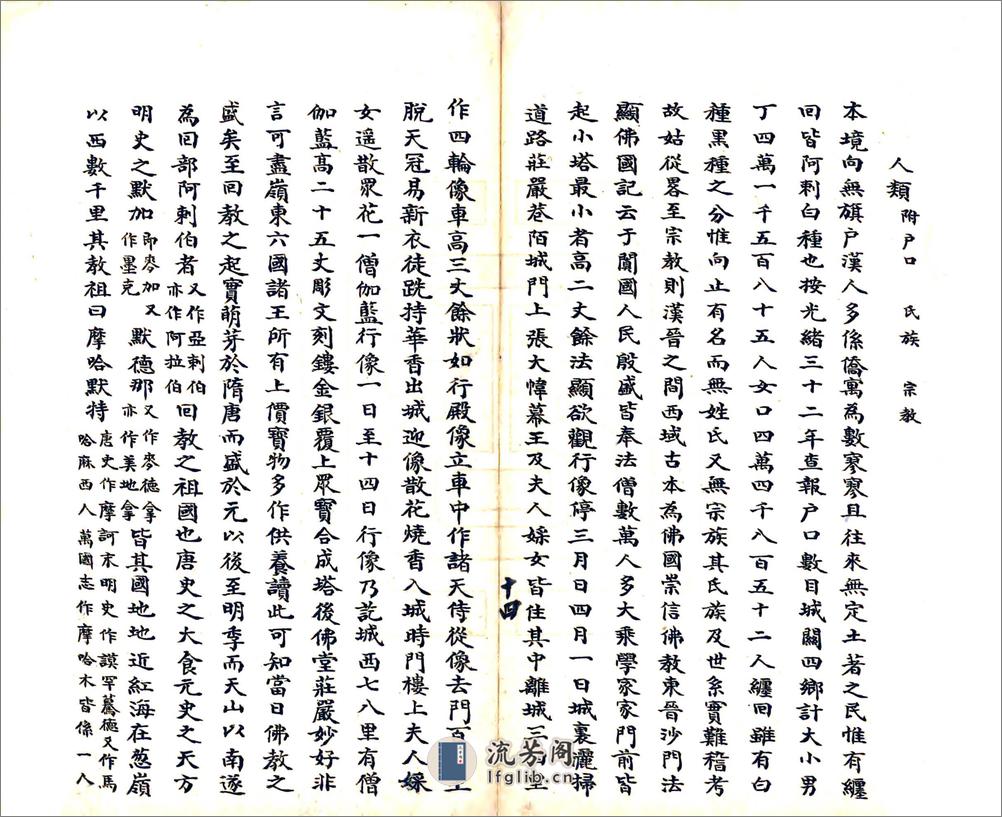 人類附户口 氏族 宗教
本境向無旗户漢人多係僑寓為數寥寥且往來無定土著之民惟有纏
回皆阿剌白種也按光緒三十二年查報户口數目城關四鄉計大小男
丁四萬一千五百八十五人女口四萬四千八百五十二人纏回雖有白
種黑種之分惟向止有名而無姓氏又無宗族其氏族及世系實難稽考
故姑從畧至宗教則漢晉之間西域古本為佛國崇信佛教東晉沙門法
顯佛國記云于闐國人民殷盛皆奉法僧數萬人多大乘學家家門前皆
起小塔最小者高二丈餘法顯欲觀行像停三月日四月一日城裏灑掃
道路莊嚴巷陌城門上張大幃幕王及夫人婇女皆住其中離城三
十四
作四輪像車高三丈餘狀如行殿像立車中作諸天侍從像去門百
脫天冠易新衣徒跣持華香出城迎像散花燒香入城時門樓上夫人婇
女遥散眾花一僧伽藍行像一日至十四日行像乃訖城西七八里有僧
伽藍高二十五丈彫文刻鏤金銀覆上眾寶合成塔後佛堂莊嚴妙好非
言可盡嶺東六國諸王所有上價寶物多作供養讀此可知當日佛教之
盛矣至回教之起實萌芽於隋唐而盛於元以後至明季而天山以南遂
為回部阿剌伯者又作亞剌伯亦作阿拉伯回教之祖國也唐史之大食元史之天方
明史之默加即麥加又作墨克默德那又作麥德拿亦作美地拿皆其國地地近紅海在葱嶺
以西數千里其教祖曰摩哈默特唐史作摩訶末明史作謨罕驀德又作馬哈麻西人萬國志作摩哈木皆係一人
流芳阁
lfglib.cn